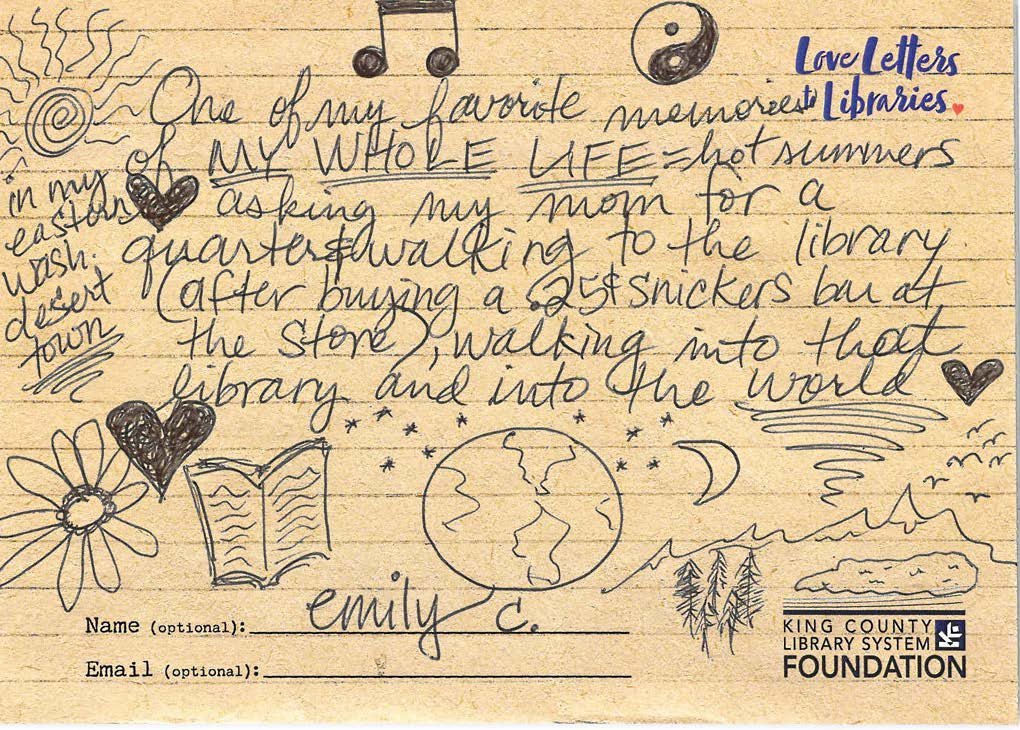 Love Letters
to Libraries
One of my favorite memories
of MY WHOLE LIFE = hot summers
in my
eastern
wash.
desert
town
asking my mom for a
quarter & walking to the library
(after buying a .25¢ Snickers bar at
the store), walking into that
library and into the world
Name (optional): emily c.
Email (optional):
KING COUNTY
LIBRARY SYSTEM
FOUNDATION